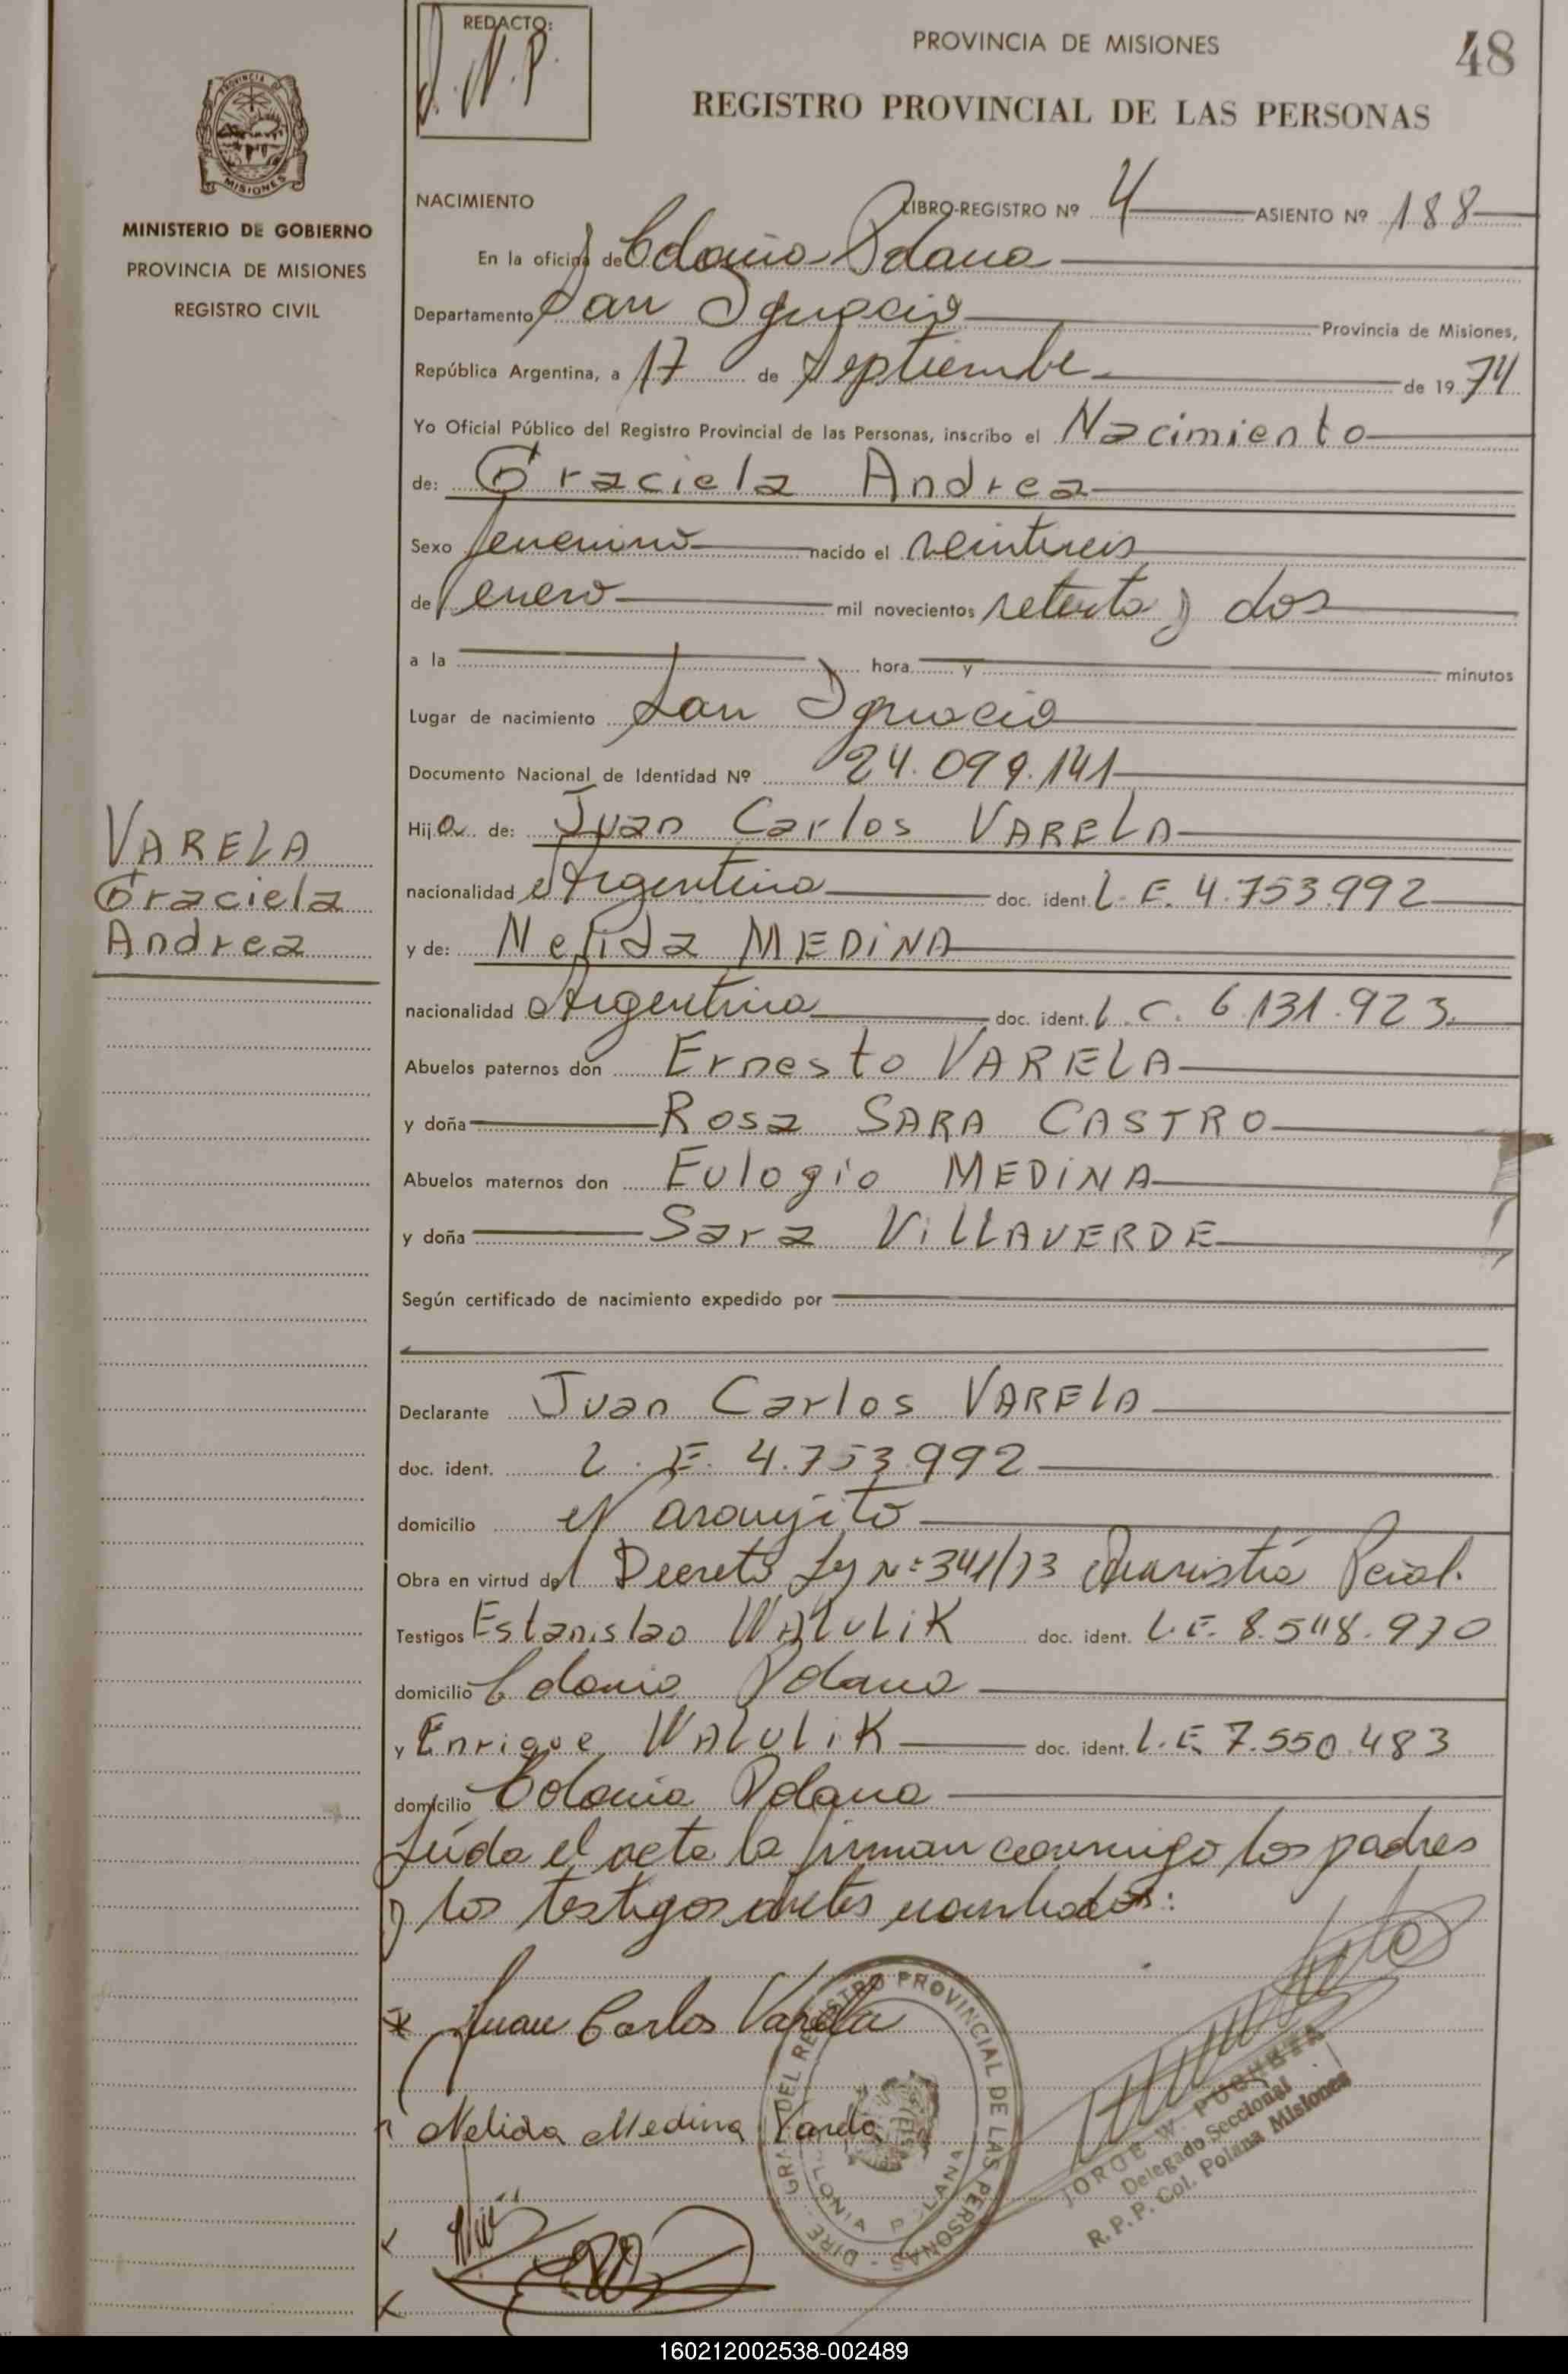 REDACTO:
J.N.P.
PROVINCIA DE MISIONES
48
REGISTRO PROVINCIAL DE LAS PERSONAS
MISIONES
MINISTERIO DE GOBIERNO
PROVINCIA DE MISIONES
REGISTRO CIVIL
NACIMIENTO LIBRO-REGISTRO Nº 4 ASIENTO Nº 188
En la oficina de Colonia Polana
Departamento San Ignacio Provincia de Misiones,
República Argentina, a 17 de Septiembre de 1974
Yo Oficial Público del Registro Provincial de las Personas, inscribo el Nacimiento
de: Graciela Andrea
Sexo femenino nacido el veintiseis
de enero mil novecientos setenta y dos
a la hora y minutos
Lugar de nacimiento San Ignacio
Documento Nacional de Identidad Nº 24.099.141
VARELA
Graciela
Andrea
Hija de: Juan Carlos VARELA
nacionalidad Argentina doc. ident. L.E. 4.753.992
y de: Nelida MEDINA
nacionalidad Argentina doc. ident. L.C. 6.131.923
Abuelos paternos don Ernesto VARELA
y doña Rosa SARA CASTRO
Abuelos maternos don Eulogio MEDINA
y doña Sara VILLAVERDE
Según certificado de nacimiento expedido por
Declarante Juan Carlos VARELA
doc. ident. L.E. 4.753.992
domicilio Naranjito
Obra en virtud del Decreto Ley Nº 341/73 Amnistía Pcial.
Testigos Estanislao WALULIK doc. ident. L.E. 8.548.970
domicilio Colonia Polana
y Enrique WALULIK doc. ident. L.E. 7.550.483
domicilio Colonia Polana
Leída el acta la firman conmigo los padres
y los testigos antes nombrados:
Juan Carlos Varela
Nelida Medina Varela
DIRE GRAL DEL REGISTRO PROVINCIAL DE LAS PERSONAS
COLONIA POLANA
JORGE W.
Delegado Seccional
R.P.P. Col. Polana Misiones
160212002538-002489